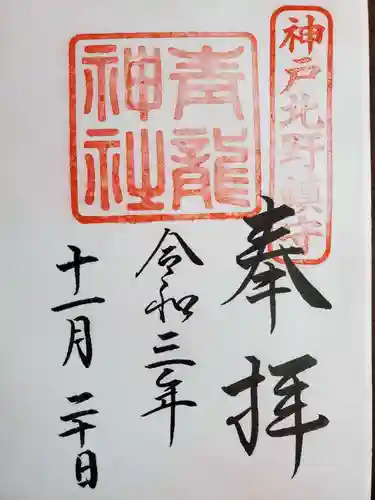 神戸北野鎮守
奉拝
青龍
神社
令和三年
十一月二十日